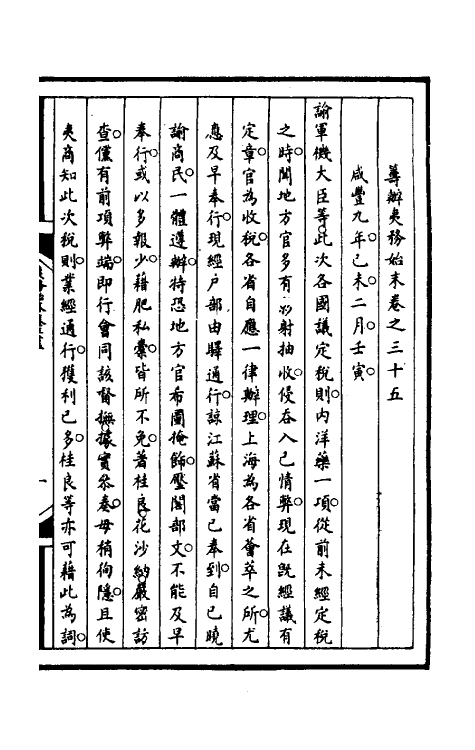 籌辦夷務始末卷之三十五
咸豐九年己未二月壬寅
諭軍機大臣等此次各國議定稅則內洋藥一項從前未經定稅
之時聞地方官多有影射抽收侵吞入己情弊現在既經議有
定章官為收稅各省自應一律辦理上海為各省薈萃之所尤
應及早奉行現經戶部由驛通行諒江蘇省當已奉到自已曉
諭商民一體遵辦特恐地方官布圖掩飾壓閣部文不能及早
奉行或以多報少藉肥私橐皆所不免著桂良花沙納嚴密訪
查儻有前項弊端即行會同該督撫據實參奏毋稍徇隱且使
夷商知此次稅則業經通行獲利已多桂良等亦可藉此為詞